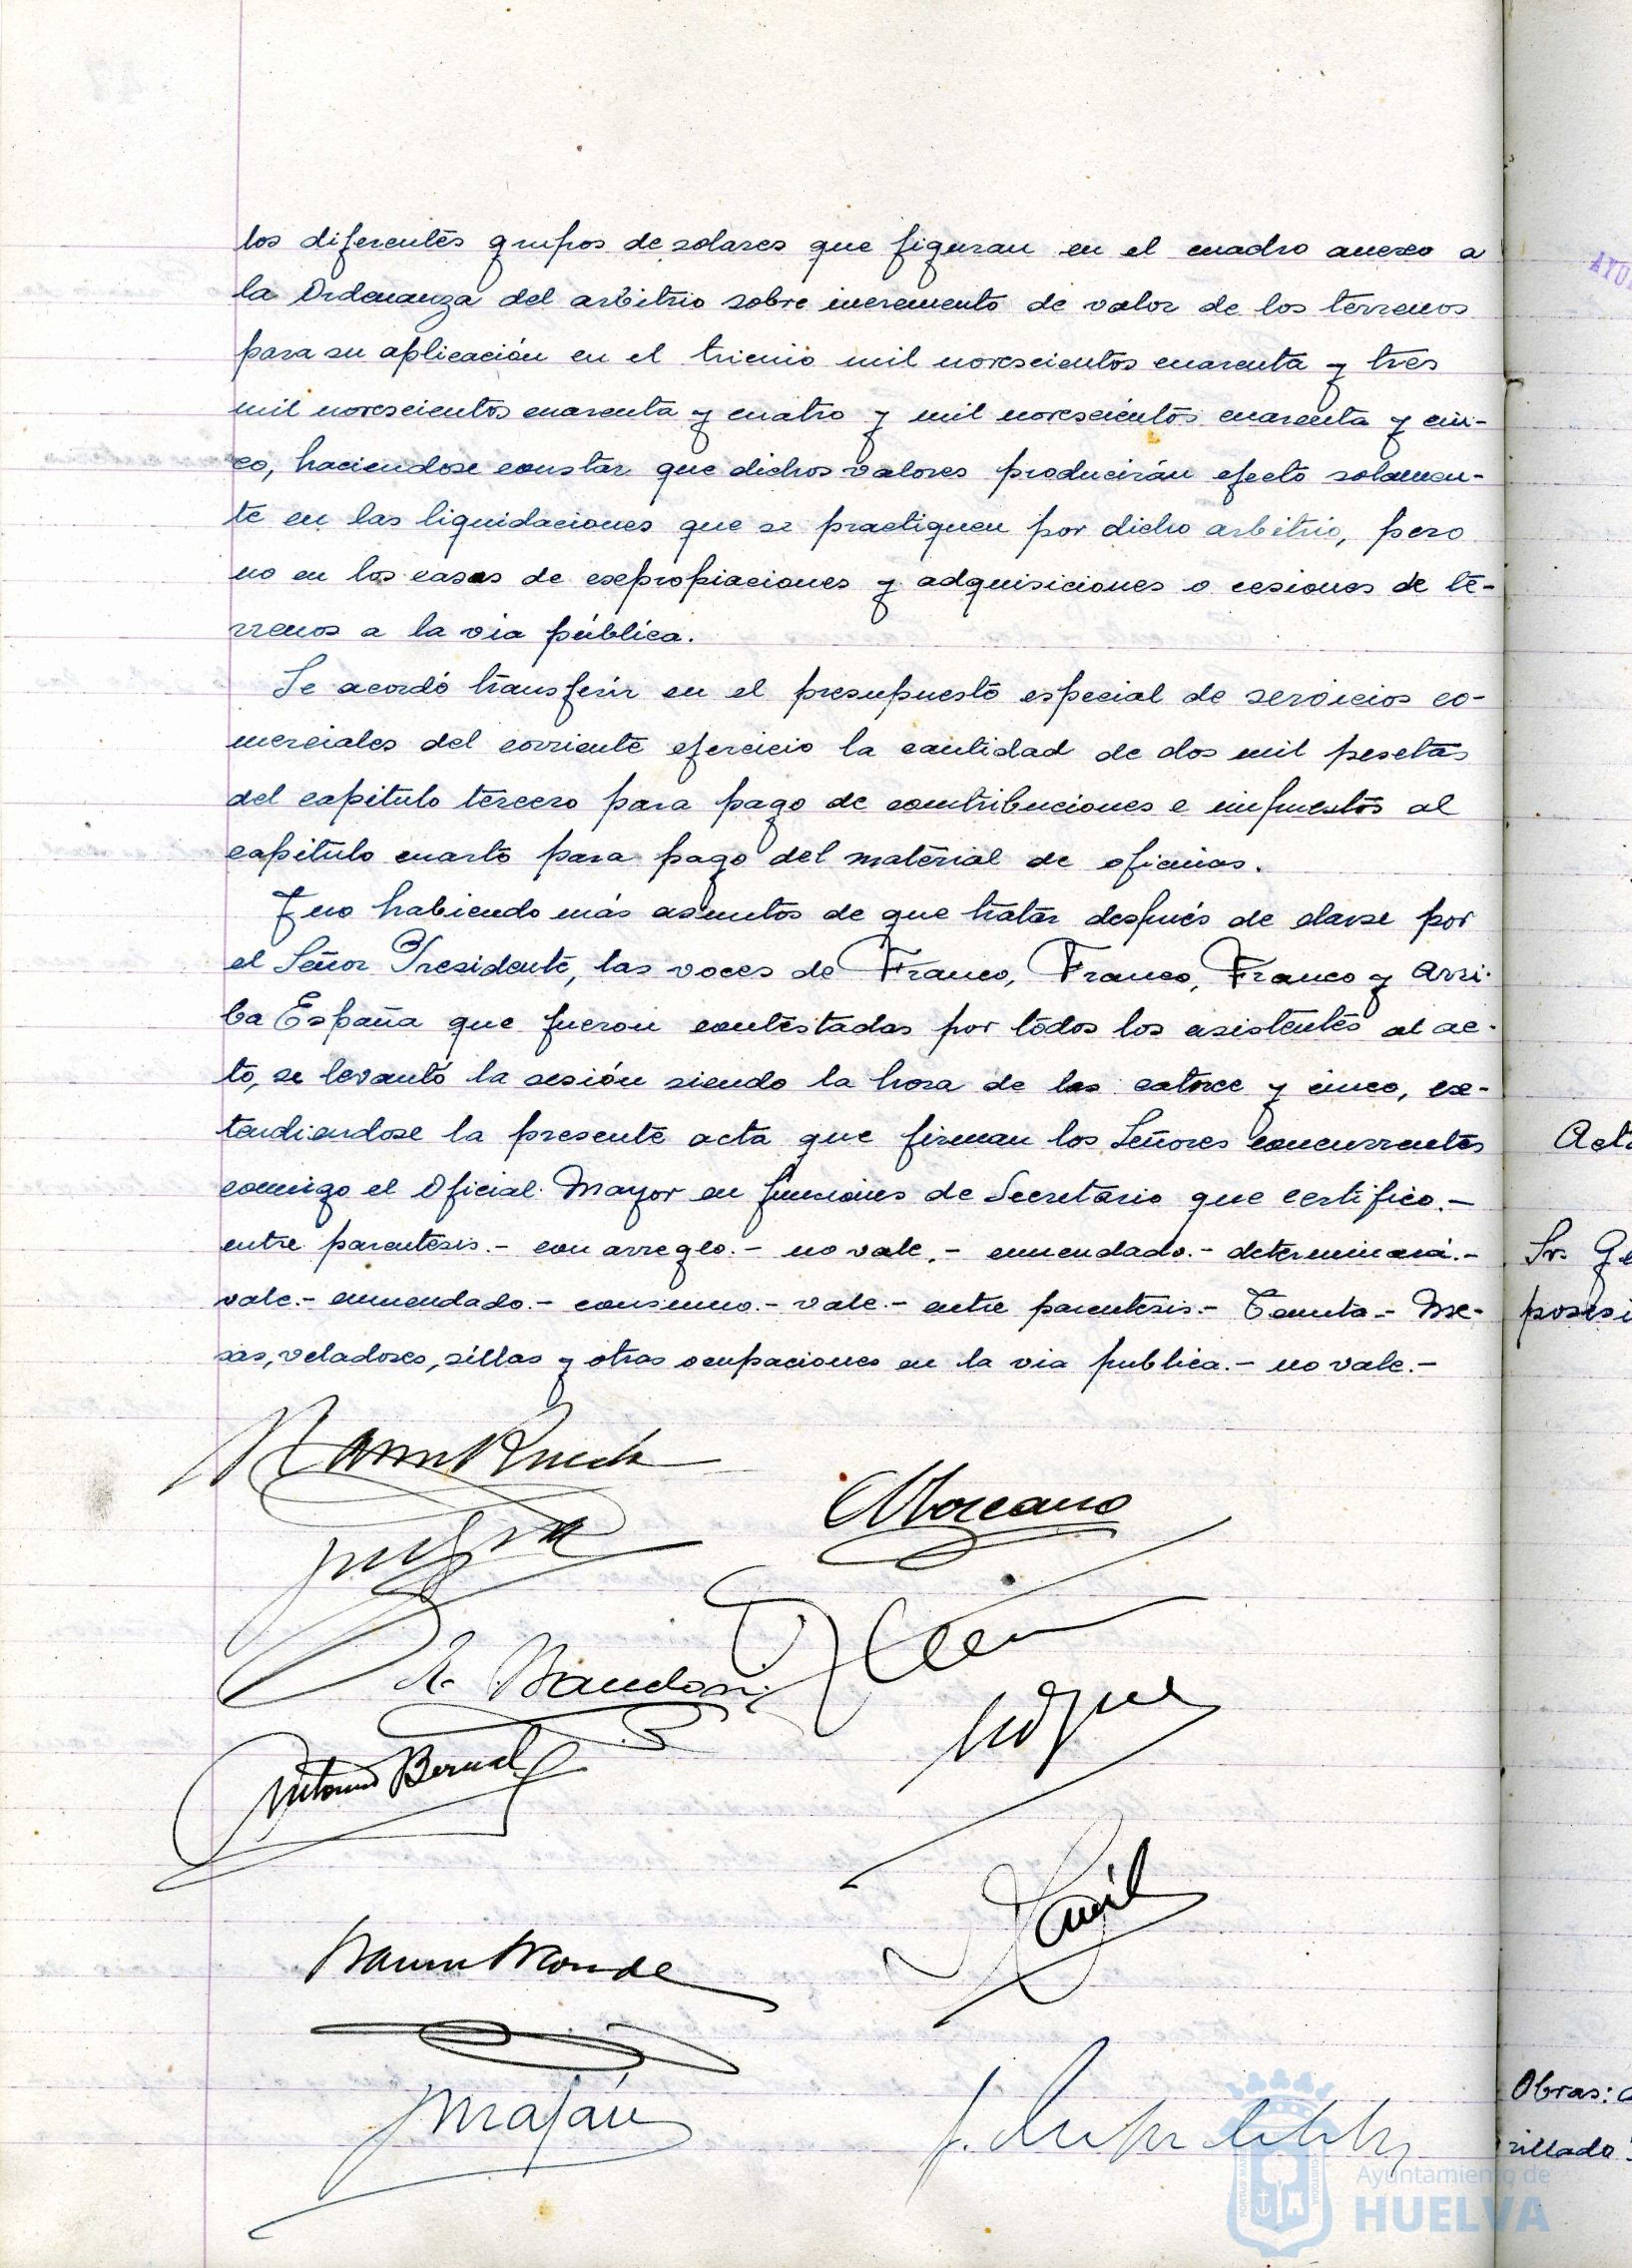 los diferentes grupos de solares que figuran en el cuadro anexo a
la Ordenanza del arbitrio sobre incremento de valor de los terrenos
para su aplicación en el trienio mil novescientos cuarenta y tres
mil novescientos cuarenta y cuatro y mil novescientos cuarenta y cin-
co, haciendose constar que dichos valores producirán efecto solamen-
te en las liquidaciones que se practiquen por dicho arbitrio, pero
no en los casos de expropiaciones y adquisiciones o cesiones de te-
rrenos a la via pública.
Se acordó transferir en el presupuesto especial de servicios co-
merciales del corriente ejercicio la cantidad de dos mil pesetas
del capitulo tercero para pago de contribuciones e impuestos al
capitulo cuarto para pago del material de oficinas.
Y no habiendo más asuntos de que tratar después de darse por
el Señor Presidente, las voces de Franco, Franco, Franco y Arri-
ba España que fueron contestadas por todos los asistentes al ac-
to, se levantó la sesión siendo la hora de las catorce y cinco, ex-
tendiendose la presente acta que firman los Señores concurrentes
conmigo el Oficial Mayor en funciones de Secretario que certifico.-
entre parentesis.- con arreglo.- no vale.- enmendado.- determinará.-
vale.- enmendado.- consumo.- vale.- entre parentesis.- Tenuta.- Me-
sas, veladores, sillas y otras ocupaciones en la via publica.- no vale.-
Moreano
Antonio Bernal
Acta
Sr. Ge
posesi
Obras:
rillado
Ayuntamiento de
HUELVA